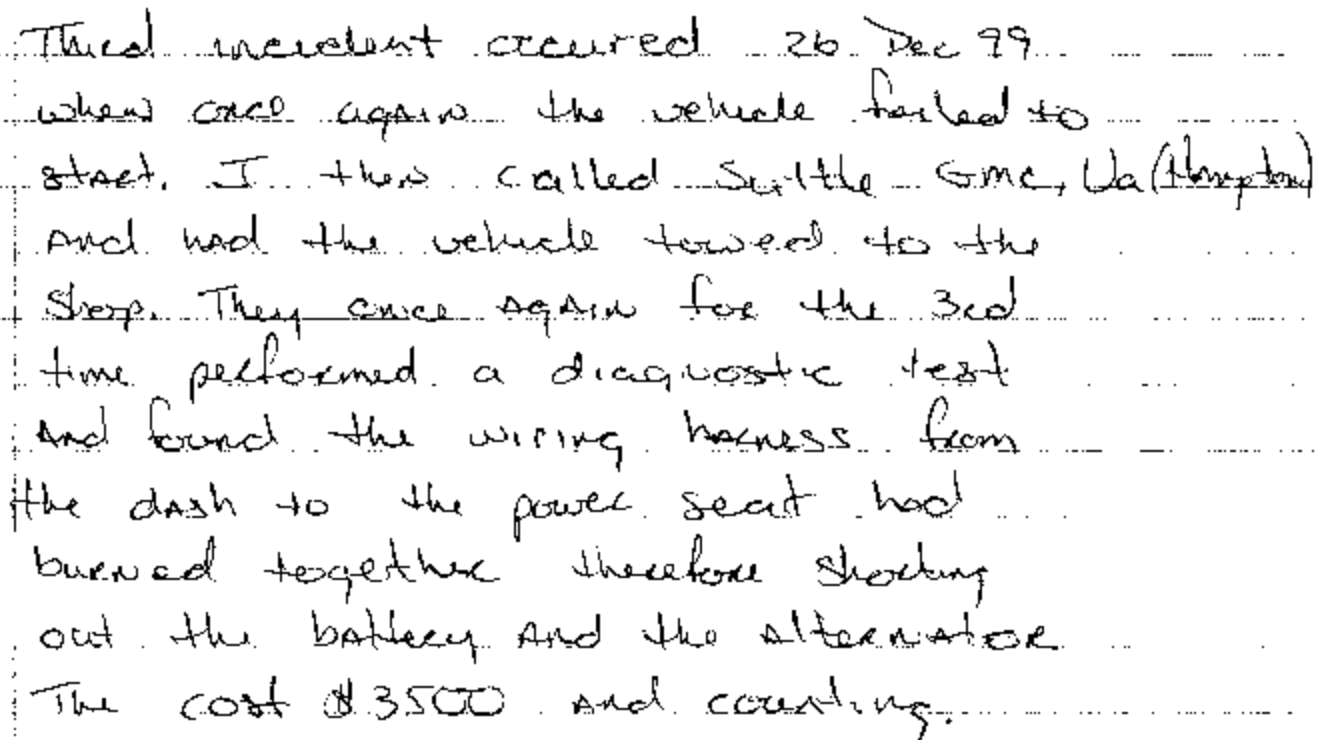 Third incident occured 26 Dec 99
when once again the vehicle failed to
start. I then called Suttle GMC, Va (Hampton)
And had the vehicle towed to the
Shop. They once again for the 3rd
time performed a diagnostic test
And found the wiring harness from
the dash to the power seat had
burned together therefore shorting
out the battery And the Alternator
The cost $3500 and counting.